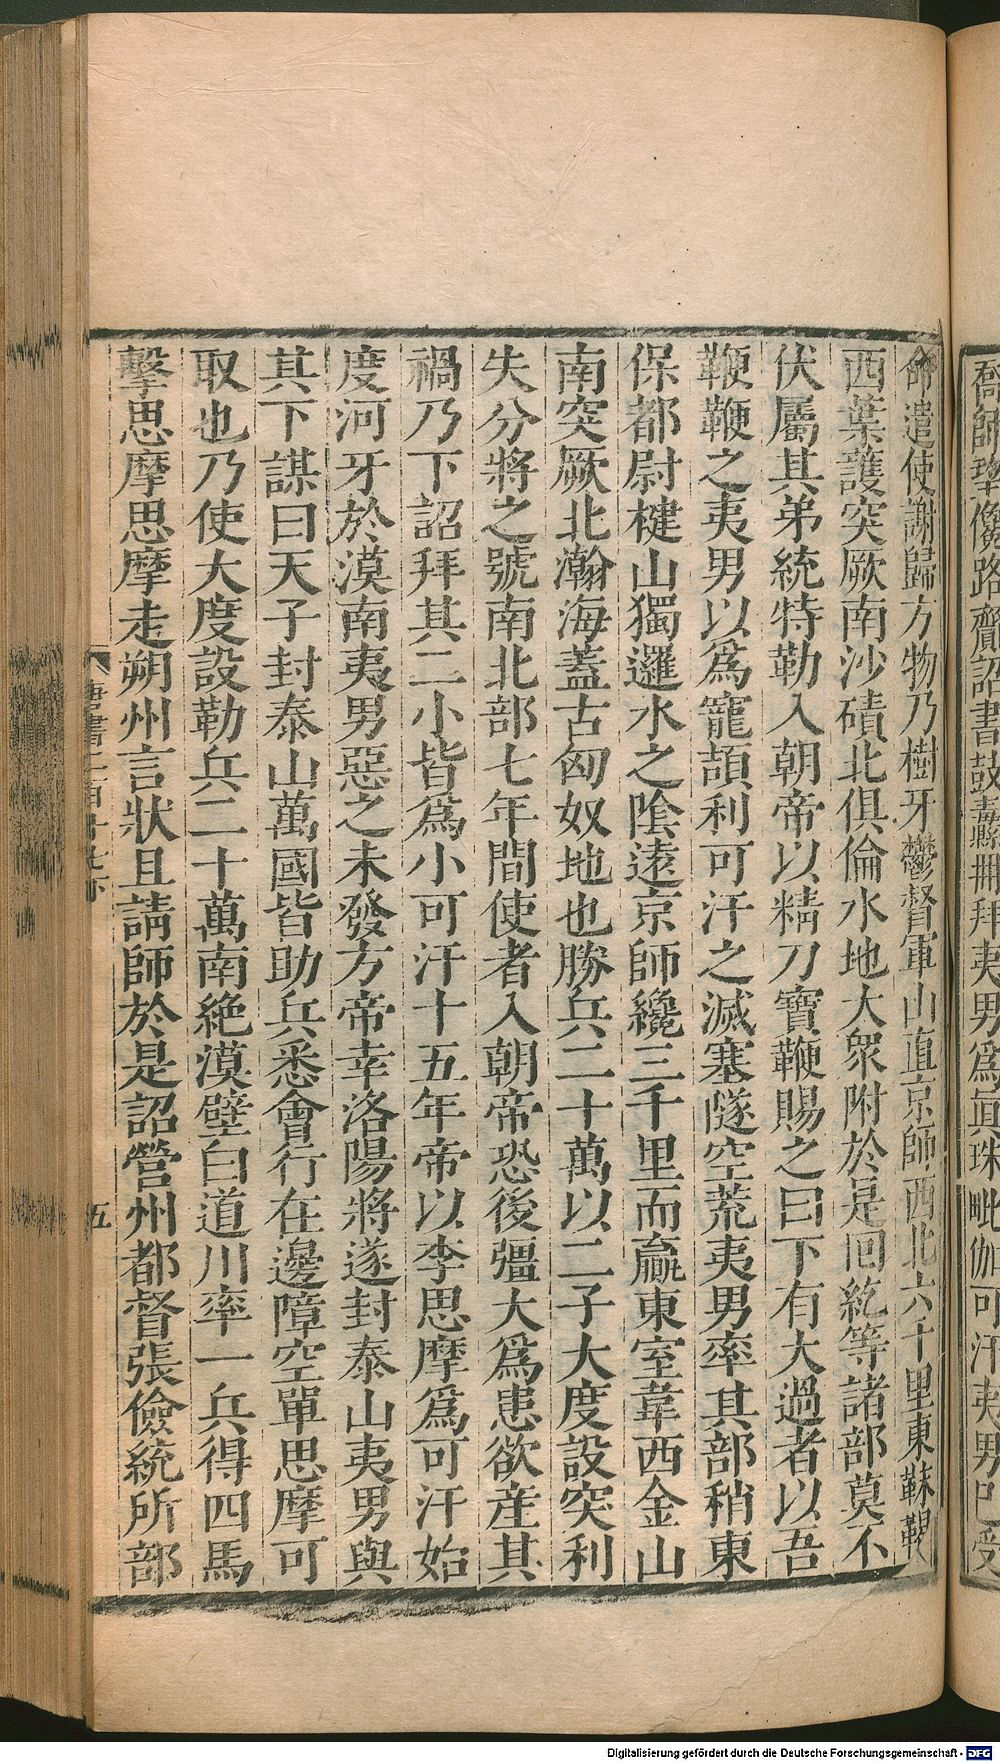 喬師望㒞路齎詔書鼓纛冊拜夷男爲眞珠毗伽可汗夷男已受
命遣使謝歸方物乃樹牙鬱督軍山直京師西北六千里東靺鞨
西葉護突厥南沙磧北俱倫水地大衆附於是回紇等諸部莫不
伏屬其弟統特勒入朝帝以精刀寶鞭賜之曰下有大過者以吾
鞭鞭之夷男以爲寵頡利可汗之滅塞隧空荒夷男率其部稍東
保都尉楗山獨邏水之陰遠京師纔三千里而贏東室韋西金山
南突厥北瀚海蓋古匈奴地也勝兵二十萬以二子大度設突利
失分將之號南北部七年間使者入朝帝恐後彊大爲患欲產其
禍乃下詔拜其二小皆爲小可汗十五年帝以李思摩爲可汗始
度河牙於漠南夷男惡之未發方帝幸洛陽將遂封泰山夷男與
其下謀曰天子封泰山萬國皆助兵悉會行在邊障空單思摩可
取也乃使大度設勒兵二十萬南絶漠壁白道川率一兵得四馬
擊思摩思摩走朔州言狀且請師於是詔營州都督張儉統所部
唐書二百十七下
五
Digitalisierung gefördert durch die Deutsche Forschungsgemeinschaft - DFG